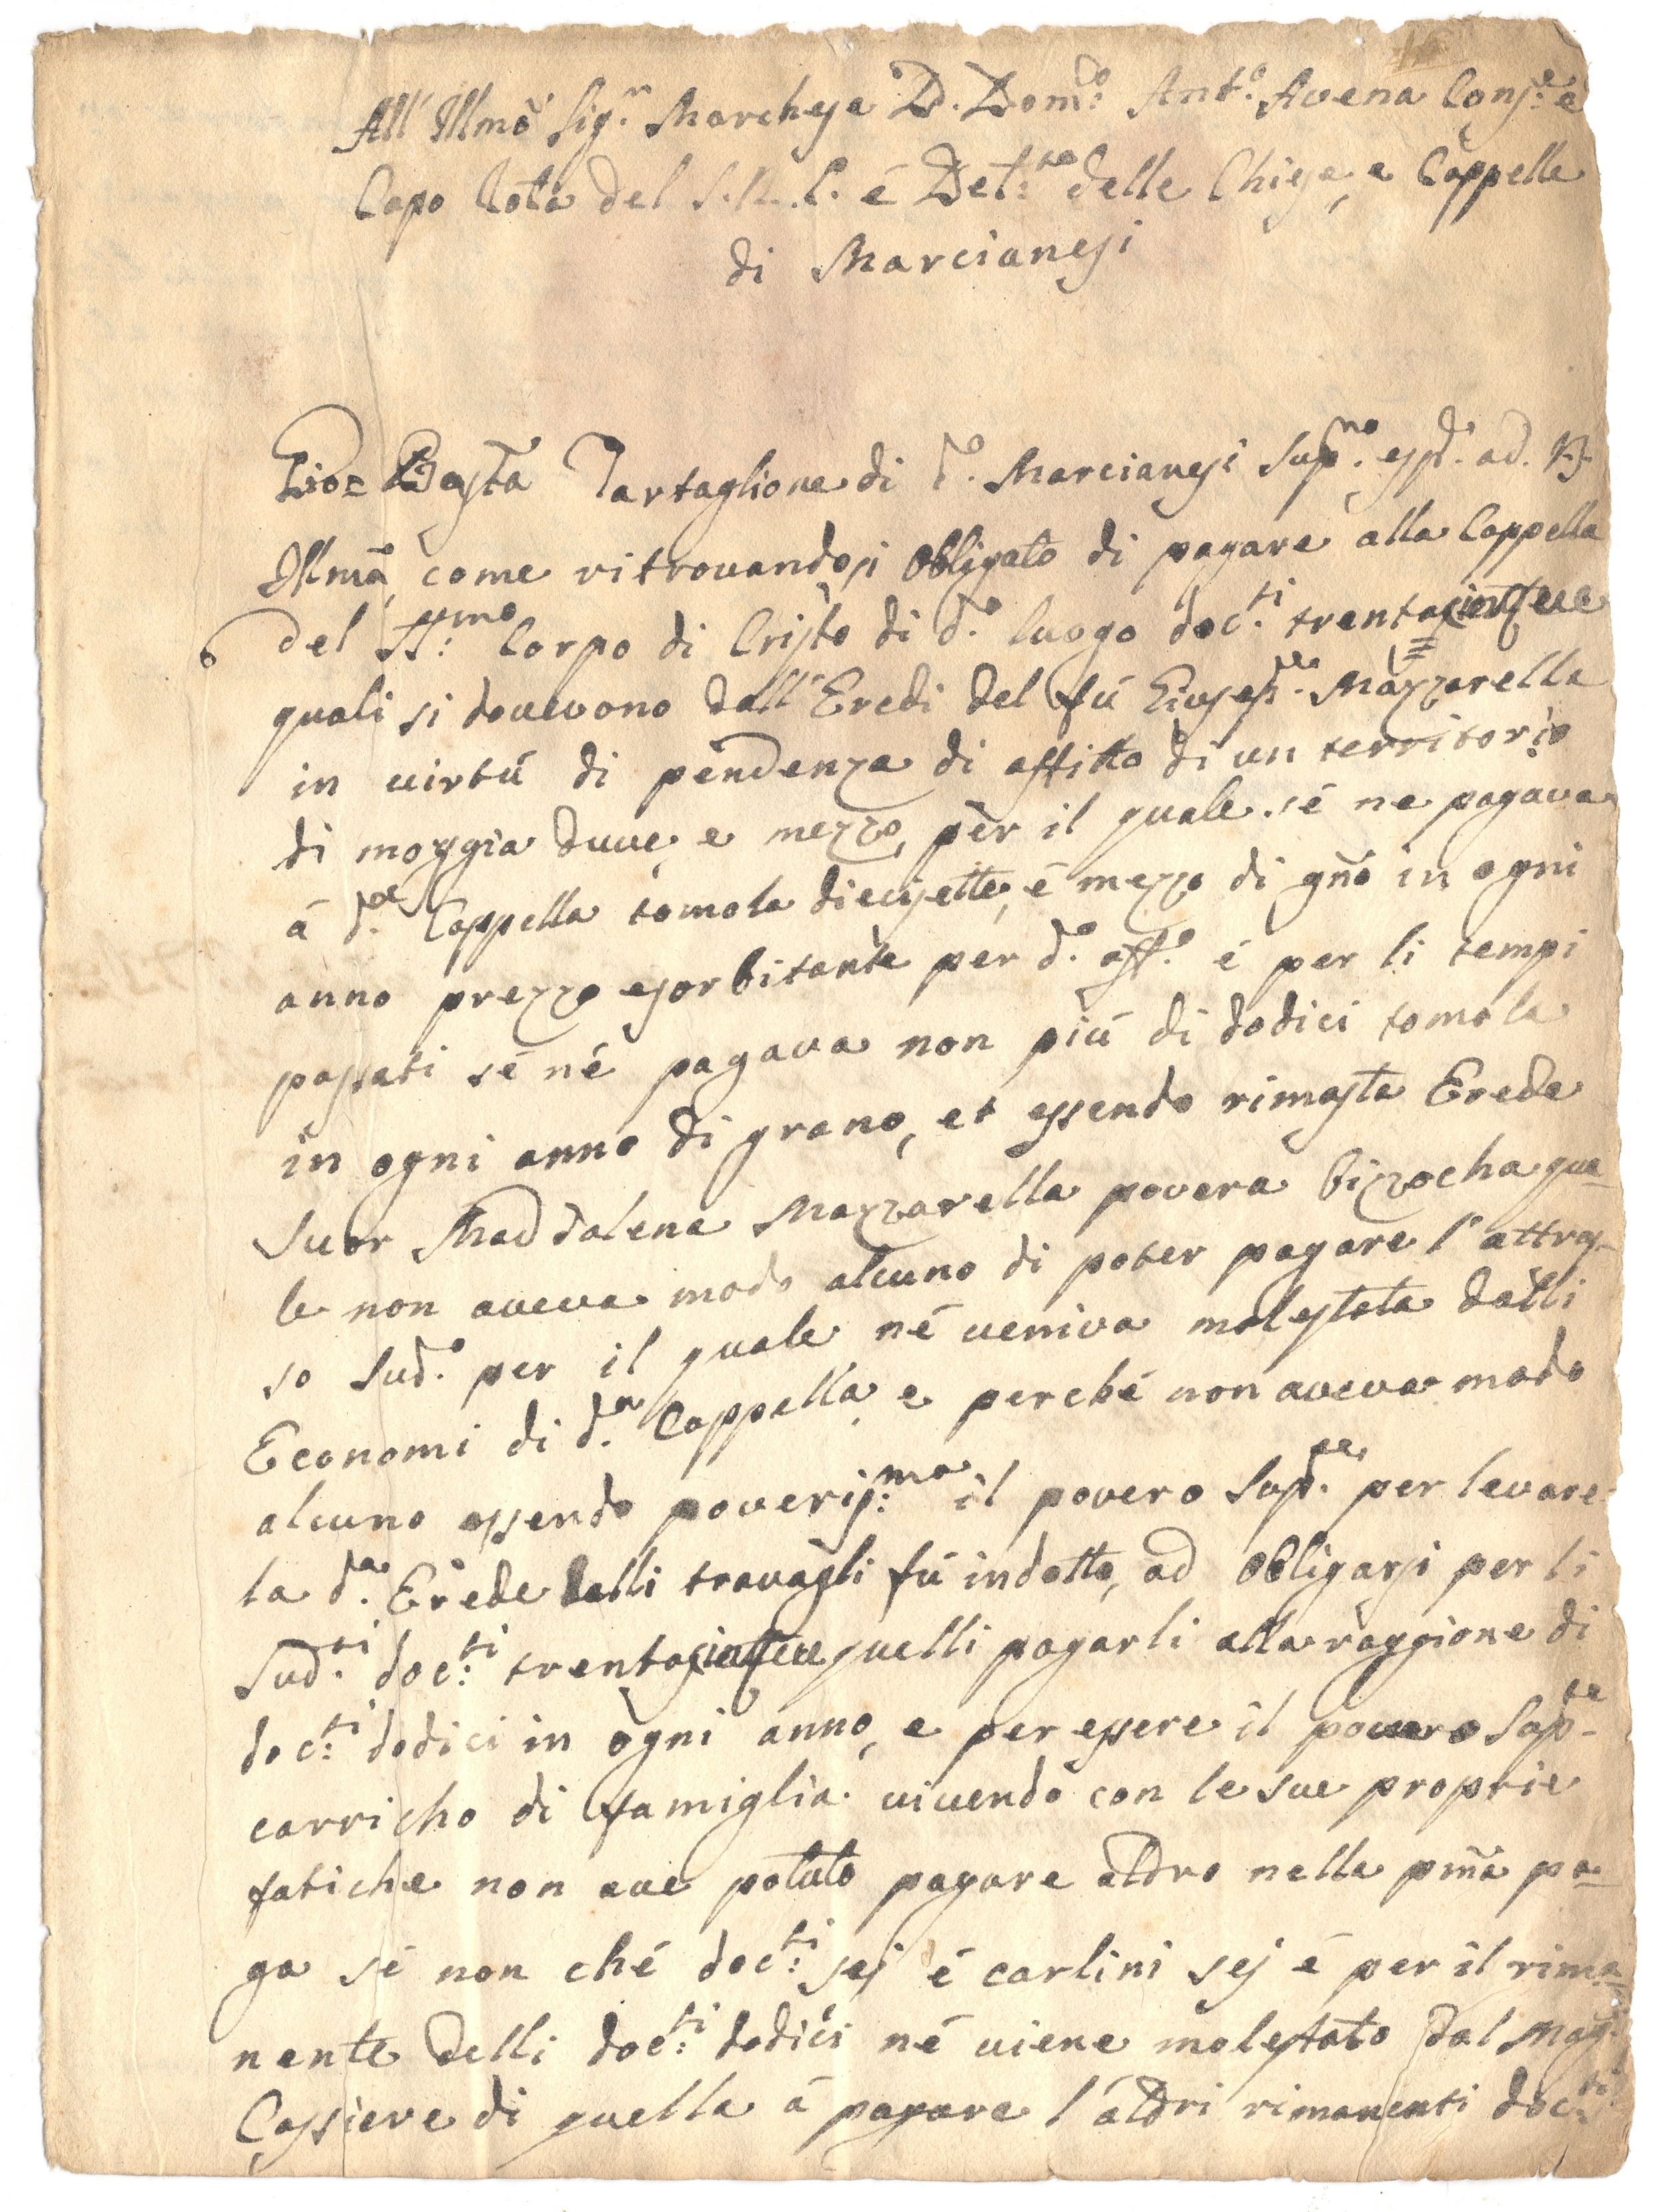 All' Illmo Sig.r Marchese D. Dom.co Ant.o Avena Cons.re é
Capo Rota del S.R.C. é Del.to delle Chiese, e Cappelle
di Marcianesi
Gio: Batta Tartaglione di d.o Marcianesi sup.no esp.d ad. V.S.
Illma, come ritrovandosi obligato di pagare alla Cappella
del SS:mo Corpo di Cristo di d.o luogo doc:ti
quali si dovevono dall' Eredi del fú Giusep.e Mazzarella
in virtú di pendenza di affitto di un territorio
di moggia duue, e mezzo, per il quale sé ne pagava
á d.a Cappella tomola diecisette, é mezzo di gño in ogni
anno prezzo esorbitante per d.o aff.o é per li tempi
passati sé né pagava non piú di dodici tomola
in ogni anno di grano, et essendo rimasta Erede
Suor Maddalena Mazzarella povera bizzocha qua-
le non aveva modo alcuno di poter pagare l'attras-
so sud.o per il quale né veniva molestata dalli
Economi di d.a Cappella, e perché non aveva modo
alcuno essendo poveris:ma il povero Sup.te per levare
la d.a Erede dalli travagli fú indotto, ad obligarsi per li
sud.ti doc:ti quelli pagarli alla raggione di
doc:ti dodici in ogni anno, e per essere il povero Sup.te
carricho di famiglia vivendo con le sue proprie
fatiche non ave potuto pagare altro nella pma pa-
ga sé non ché doc:ti sej é carlini sej é per il rima-
nente delli doc:ti dodici né viene molestato dal Mag.
Cassiere di quella á pagare l'altri rimanenti doc:ti